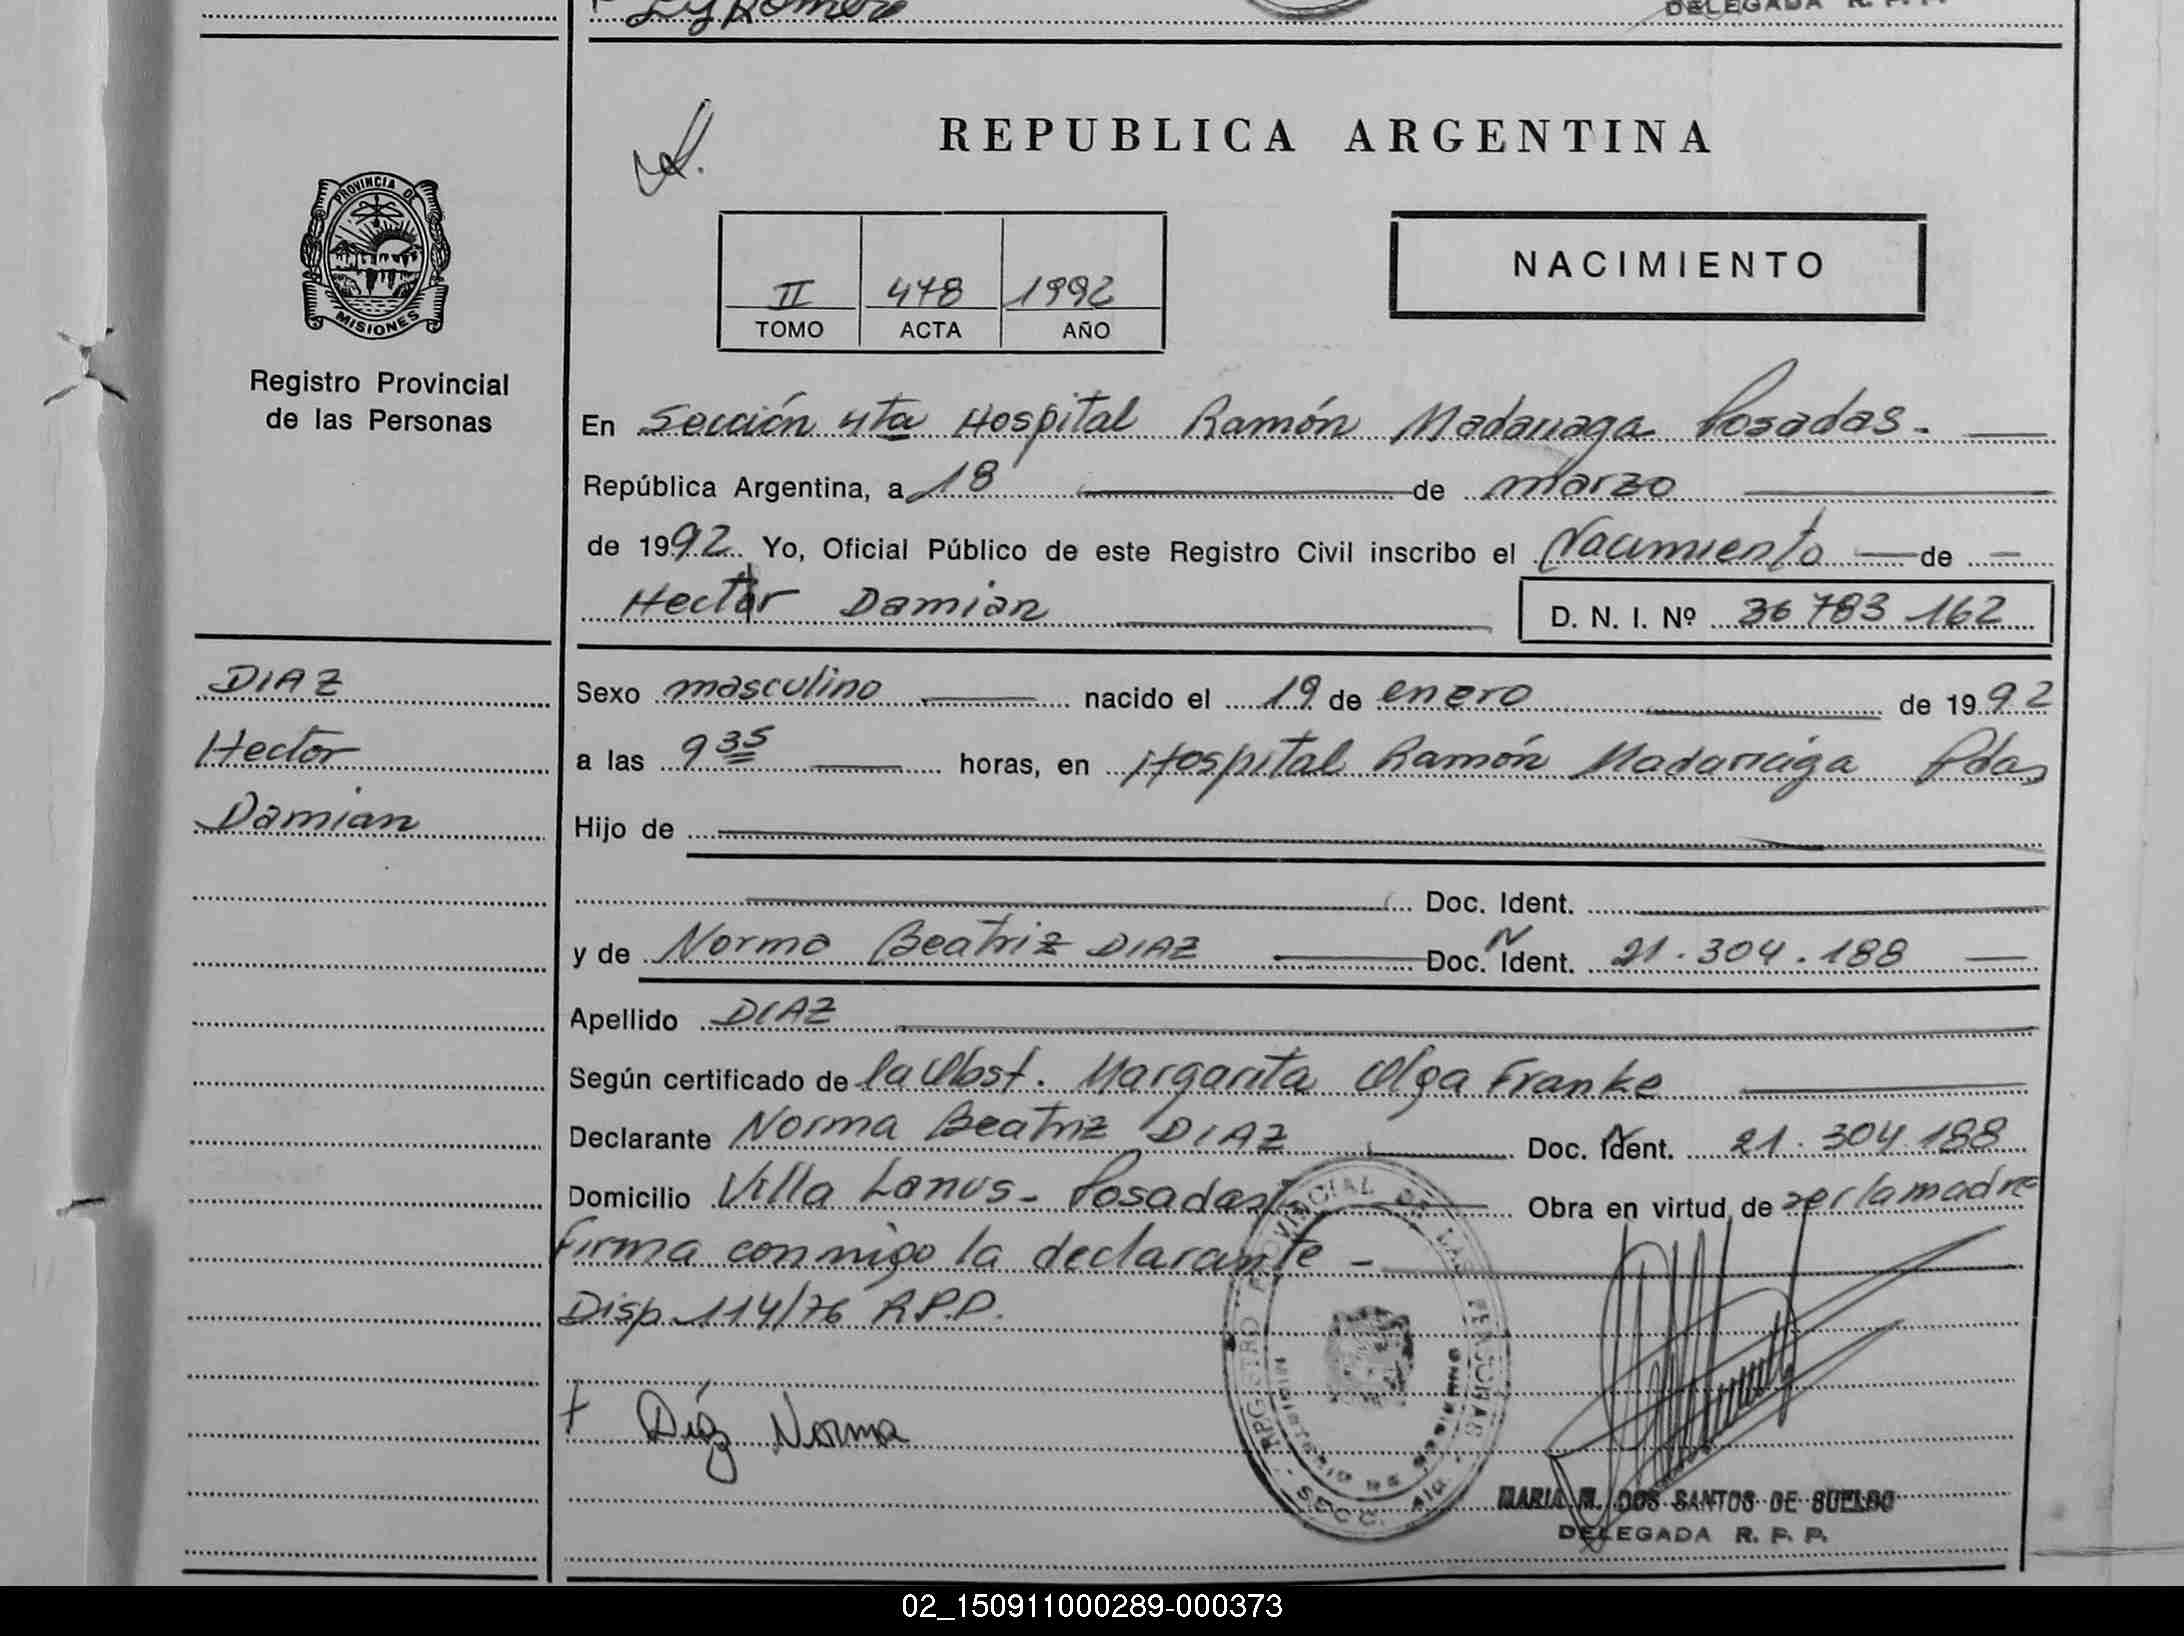 Romero
DELEGADA R. P. P.
REPUBLICA ARGENTINA
PROVINCIA DE
MISIONES
NACIMIENTO
II 478 1992
TOMO ACTA AÑO
Registro Provincial
de las Personas
En Sección 4ta Hospital Ramón Madariaga Posadas.
República Argentina, a 18 de marzo
de 1992 Yo, Oficial Público de este Registro Civil inscribo el Nacimiento de
Hector Damian D. N. I. Nº 36 783 162
DIAZ
Hector
Damian
Sexo masculino nacido el 19 de enero de 1992
a las 9 35 horas, en Hospital Ramón Madariaga Pdas
Hijo de
Doc. Ident.
y de Norma Beatriz DIAZ Doc. N Ident. 21.304.188
Apellido DIAZ
Según certificado de la Obst. Margarita Olga Franke
Declarante Norma Beatriz DIAZ Doc. N Ident. 21.304.188
Domicilio Villa Lanus - Posadas Obra en virtud de ser la madre
Firma conmigo la declarante -
Disp. 114/76 R.P.P.
+ Díaz Norma
REGISTRO PROVINCIAL DE LAS PERSONAS
MARIA M. DOS SANTOS DE SUELDO
DELEGADA R. P. P.
02_150911000289-000373